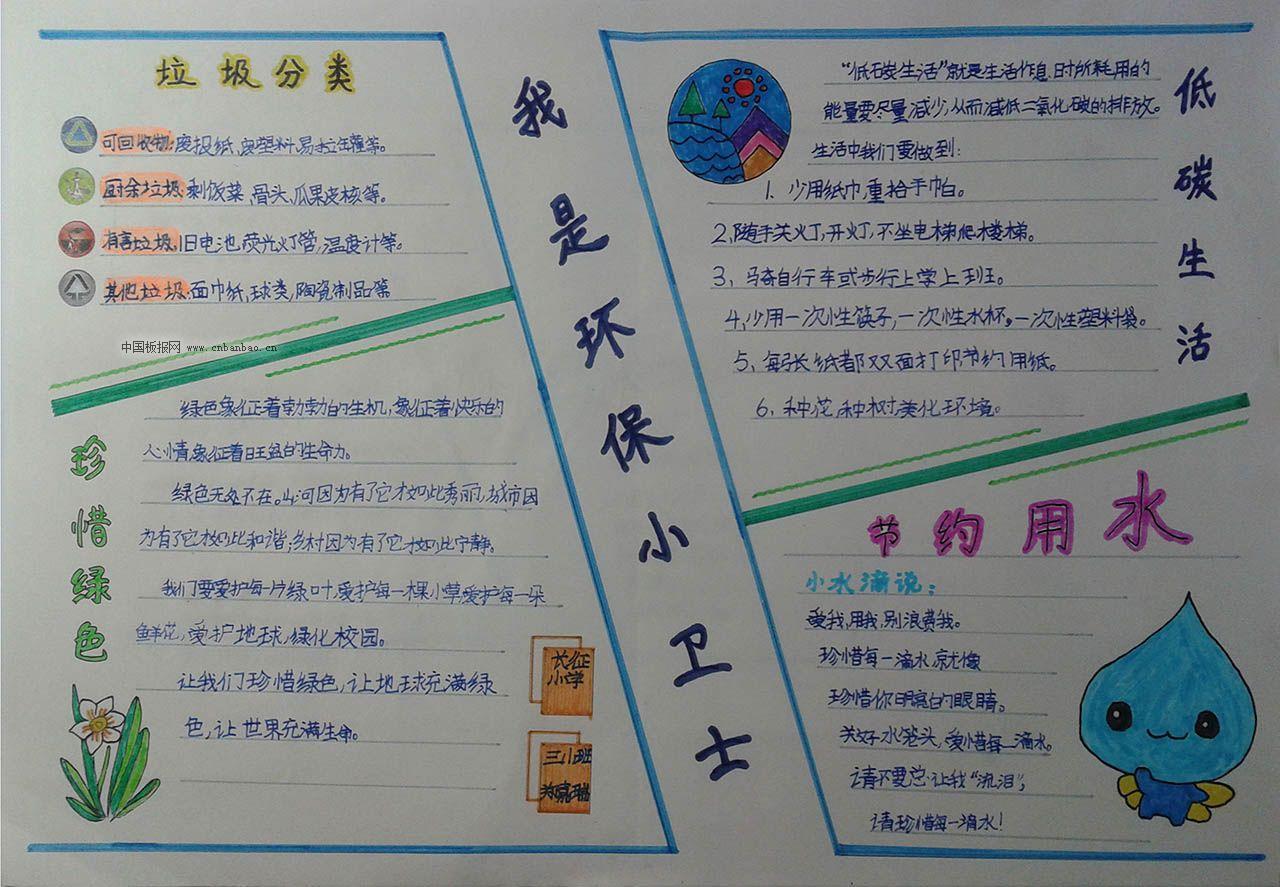 我是环保小卫士
垃圾分类
可回收物:废报纸、废塑料、易拉罐等。
厨余垃圾:剩饭菜、骨头、瓜果皮核等。
有害垃圾:旧电池、荧光灯管、温度计等。
其他垃圾:面巾纸,球类,陶瓷制品等
中国板报网 www.cnbanbao.cn
珍惜绿色
绿色象征着勃勃的生机,象征着快乐的
心情,象征着旺盛的生命力。
绿色无处不在。山河因为有了它才如此秀丽,城市因
为有了它才如此和谐;乡村因为有了它才如此宁静。
我们要爱护每一片绿叶,爱护每一棵小草,爱护每一朵
鲜花,爱护地球,绿化校园。
让我们珍惜绿色,让地球充满绿
色,让世界充满生命。
长征
小学
三小班
低碳生活
“低碳生活”就是生活作息时所耗用的
能量要尽量减少,从而减低二氧化碳的排放。
生活中我们要做到:
1、少用纸巾,重拾手帕。
2、随手关灯,开灯,不坐电梯爬楼梯。
3、骑自行车或步行上学上班。
4、少用一次性筷子,一次性水杯,一次性塑料袋。
5、每张纸都双面打印,节约用纸。
6、种花,种树,美化环境。
节约用水
小水滴说:
爱我,用我,别浪费我。
珍惜每一滴水,就像
珍惜你明亮的眼睛。
关好水龙头,爱惜每一滴水。
请不要总让我“流泪”,
请珍惜每一滴水!